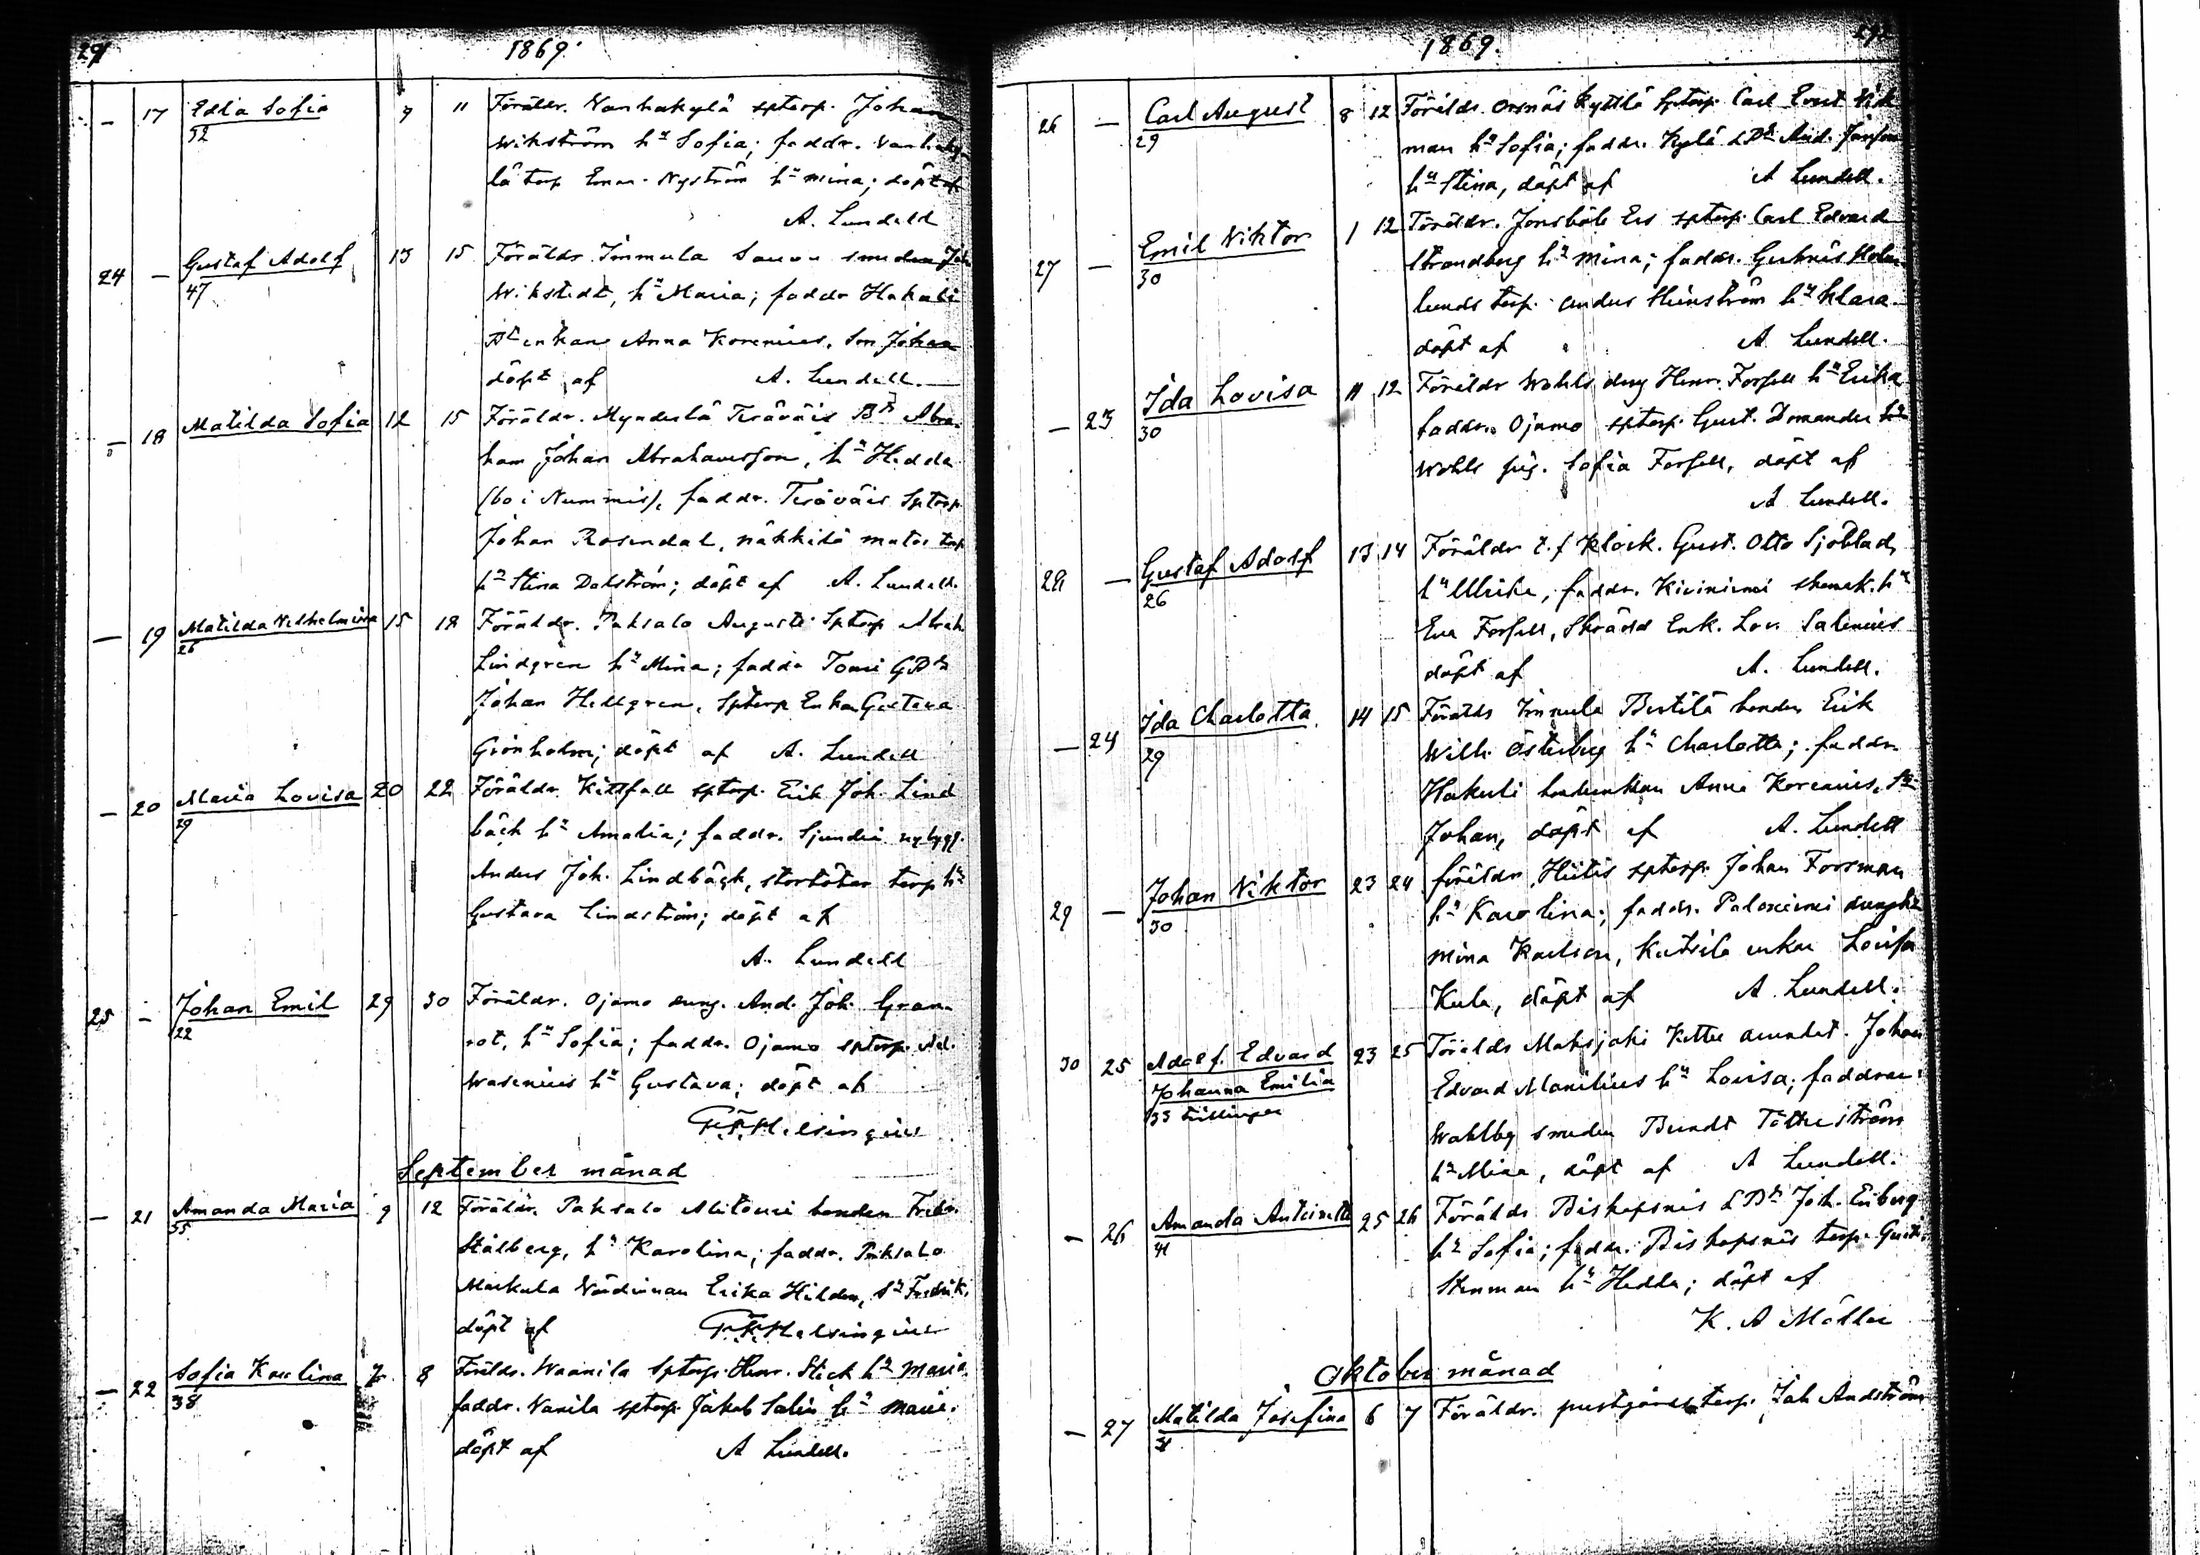 291
1869.
— 17 Edla Sofia 9 11 Föräldr. Vanhakylä sptorp. Johan
52 Wikström hu Sofia; faddr. Vanhaky-
lä torp Eman. Nyström hu Mina; döpt af
A. Lundell
24 — Gustaf Adolf 13 15 Föräldr. Immula Sauvu smeden Joh
47 Wikstedt, hu Maria; faddr Hakuli
Bd enkan Anna Korenius, Son Johan
döpt af A. Lundell.
— 18 Matilda Sofia 12 15 Föräldr. Mynderlä Teräväis Bd Abra-
ham Johan Abrahamsson, hu Hedda
(bo i Nummis), faddr. Teräväis Sptorp.
Johan Rosendal, näkkilä torp
hu Stina Dahlström; döpt af A. Lundell.
— 19 Matilda Vilhelmina 15 18 Föräldr. Paksalo Augusti Sptorp Abrah
26 Lindgren hu Mina; faddr Tomi GBds
Johan Hellgren, Sptorp Enkan Gustava
Grönholm; döpt af A. Lundell
— 20 Maria Lovisa 20 22 Föräldr. Kittfall sptorp. Erik Joh. Lind
29 bäck hu Amalia; faddr. Sjundeå nybygg.
Anders Joh. Lindbäck, störtötar torp hu
Gustava Lindström; döpt af
A. Lundell
25 — Johan Emil 29 30 Föräldr. Ojamo dreng. And. Joh. Gran-
22 rot, hu Sofia; faddr. Ojamo sptorp. Ad.
Wasenius hu Gustava; döpt af
F. F. Helsingius
September månad
— 21 Amanda Maria 9 12 Föräldr. Paksalo Alitomi bonden Fredr.
55 Stålberg, hu Karolina; faddr. Paksalo
Markula Värdinnan Erika Hilden, sn Fredrik,
döpt af F. F. Helsingius
— 22 Sofia Karolina 7 8 Föräldr. Waanila Sptorp. Henr. Stick hu Maria.
38 faddr. Vanila sptorp Jakob Salin hu Maria.
döpt af A Lundell.
1869.
26 — Carl August 8 12 Föräldr. Ormnäs Kyttlä Sptorp. Carl Ernst Vick
29 man hu Sofia; faddr. Kylä LBd And. Jansson
hu Stina, döpt af A Lundell.
27 — Emil Viktor 1 12 Föräldr. Jonsböle Ers sptorp. Carl Edvard
30 Strandberg hu Mina; faddr. Gerknäs Holm
lunds torp. Anders Stenström hu Klara
döpt af A. Lundell.
— 23 Ida Lovisa 11 12 Föräldr Wohls dreng Henr. Forsell hu Erika
30 faddr. Ojamo sptorp. Gust. Domander hu
Wohls pig. Sofia Forsell, döpt af
A Lundell.
28 — Gustaf Adolf 13 14 Föräldr t. f Klock. Gust. Otto Sjöblad,
26 hu Ulrika, faddr. Kiviniemi skomak. hu
Eva Forsell, Skrädd Enk. Lov. Salenius
döpt af A. Lundell.
— 24 Ida Charlotta 14 15 Föräldr Immula Bertilä bonden Erik
29 Wilh. Österberg hu Charlotta; faddr.
Hakuli bondenkan Anna Korenius, Sn
Johan, döpt af A. Lundell
29 — Johan Viktor 23 24 föräldr. Hiitis sptorp. Johan Forsman
30 hu Karolina; faddr. Paloniemi
Mina Karlson, Kutsila enkan Lovisa
Kula, döpt af A. Lundell.
30 25 Adolf. Edvard 23 25 Föräldr Maksjoki Kettu arendat. Johan
Johanna Emilia Edvard Manilius hu Lovisa; faddrar
33 tvillingar Wahlbg smeden Berndt Tötterström
hu Mina, döpt af A Lundell.
— 26 Amanda Antoinette 25 26 Föräldr. Biskopsnäs LBds Joh. Enberg
41 hu Sofia; faddr. Biskopsnäs torp. Gust.
Stenman hu Hedda; döpt af
K. A Möller
Oktober månad
— 27 Matilda Josefina 6 7 Föräldr. prestgårds torp. Joh Andström
31